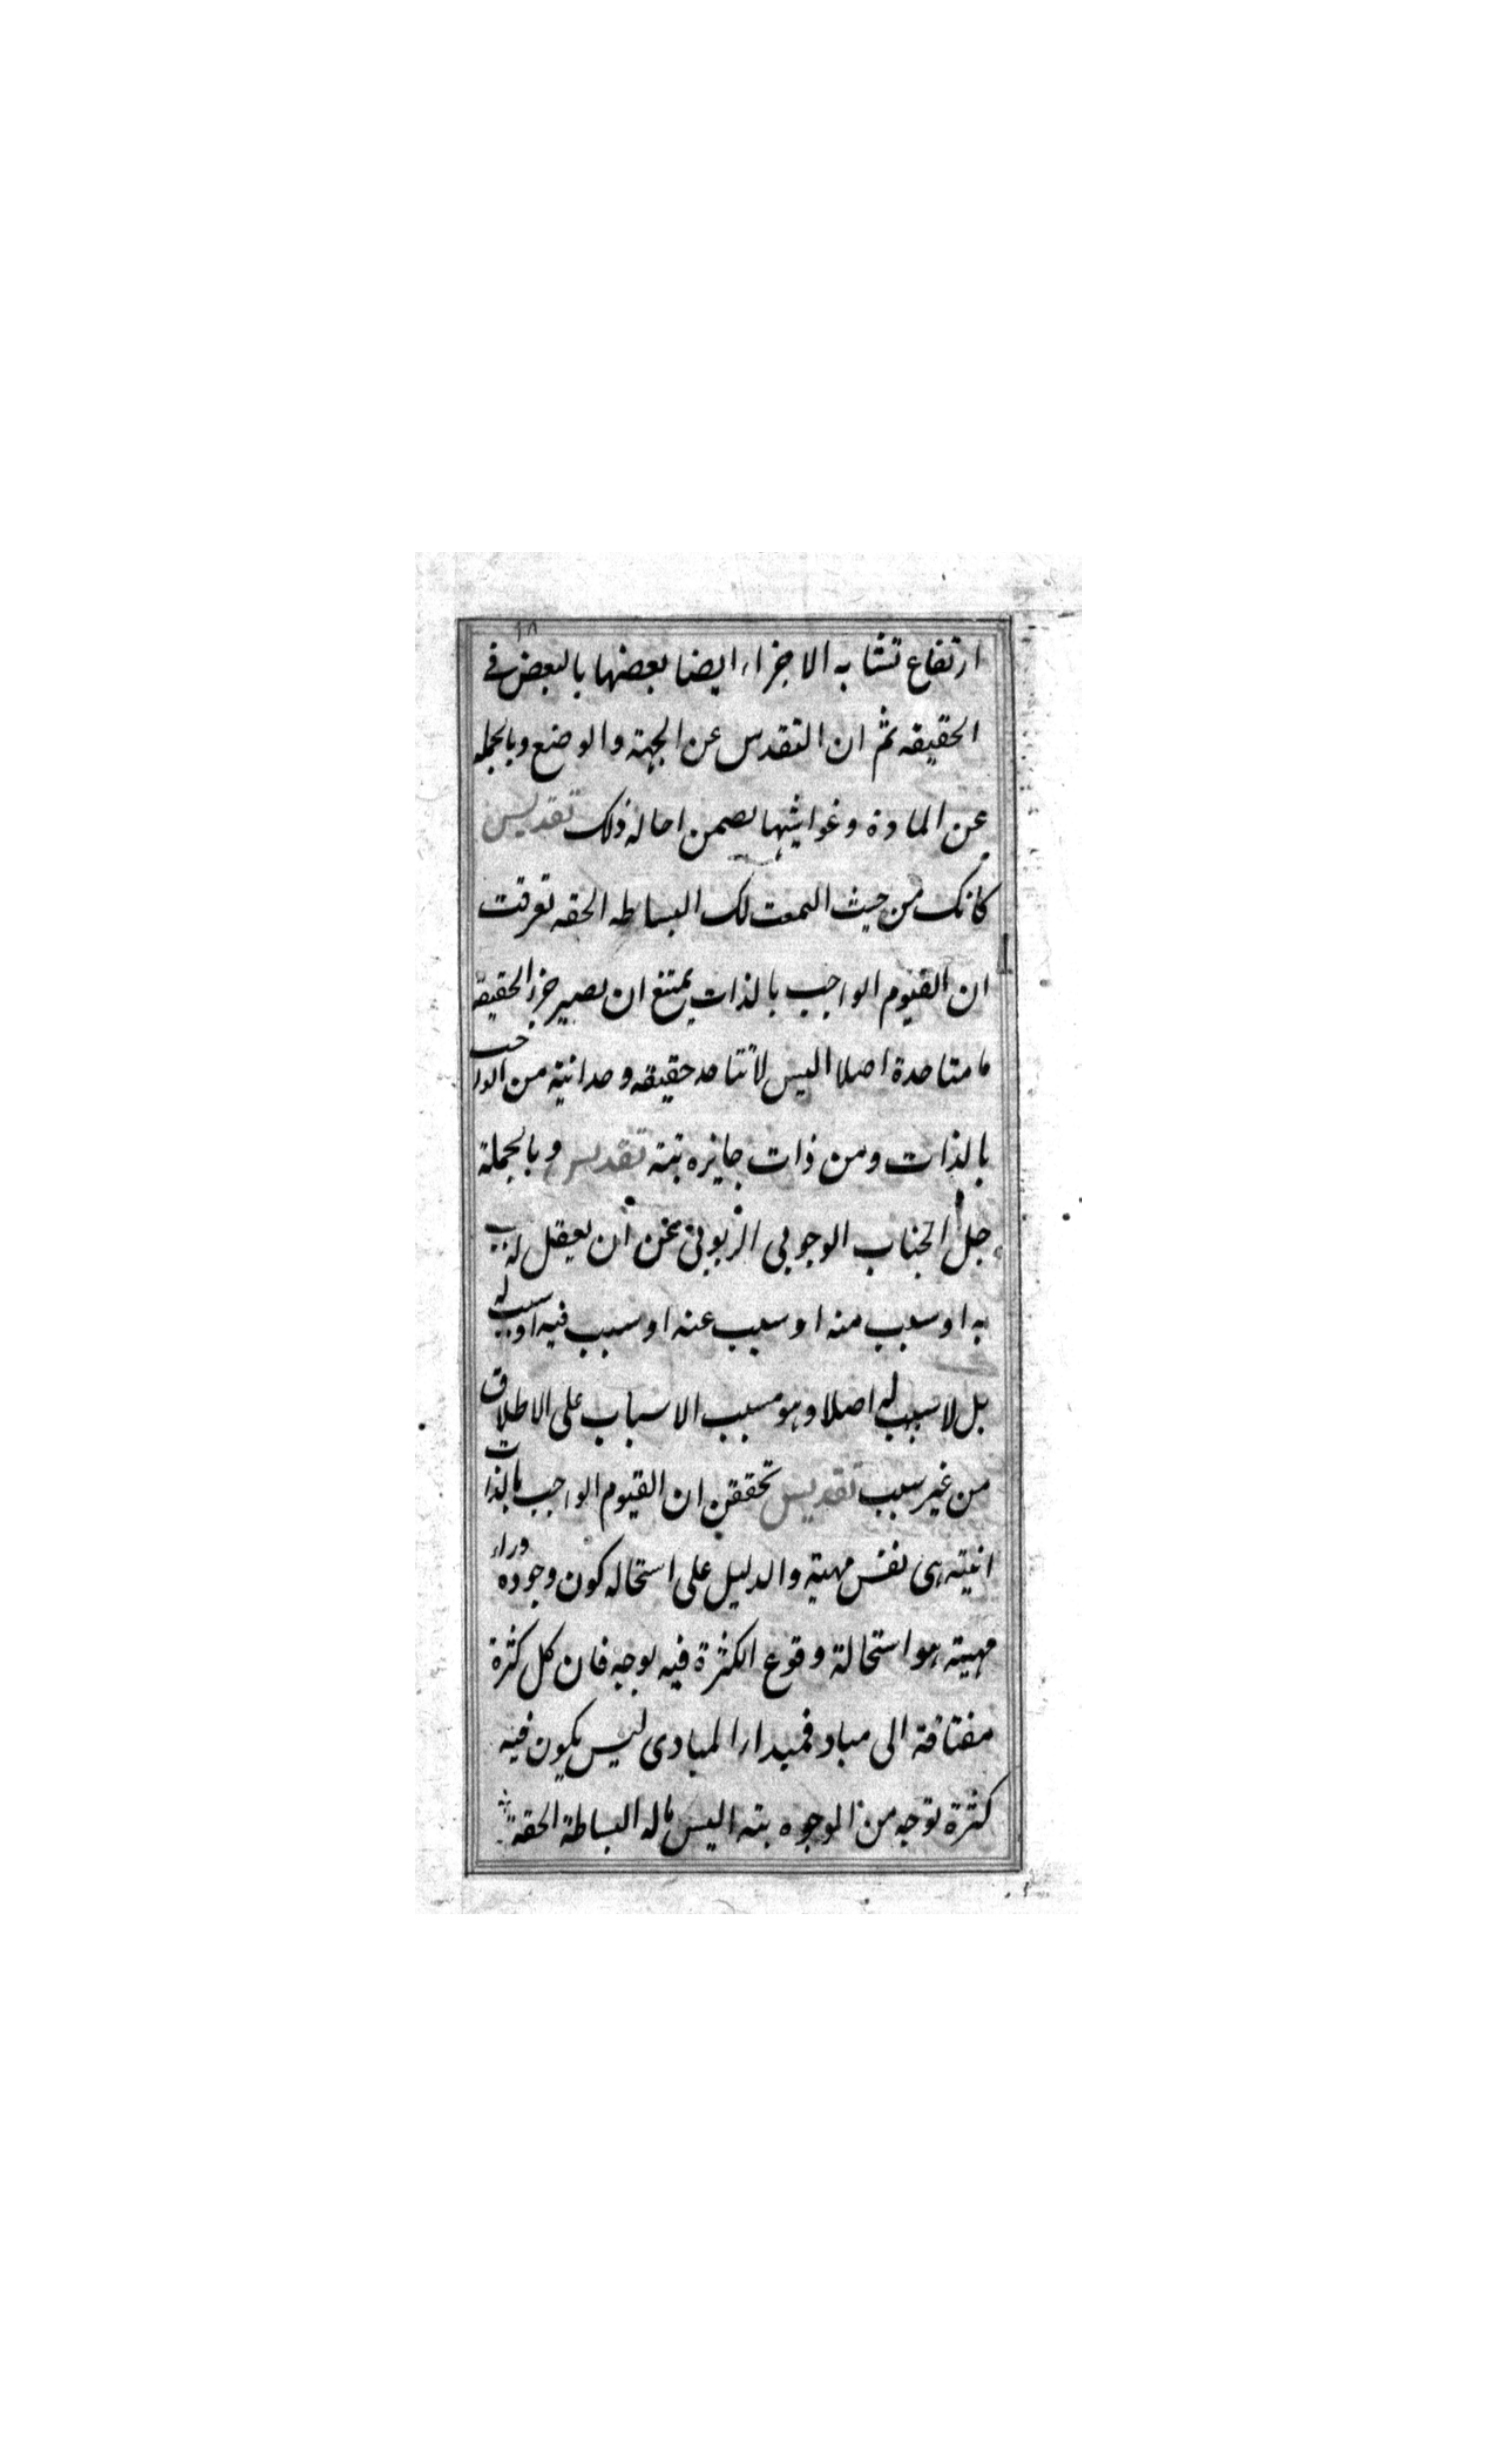 ارتفاع تشابه الاجزاء ايضا بعضها بالبعض في
الحقيقه ثم ان التقدس عن الجهة والوضع وبالجمله
عن المادة وغواشيها يضمن احاله ذلك تقديس
كانك من حيث لك البساطه الحقه تعرفت
ان القيوم الواجب بالذات يمتنع ان يصير جزء الحقيقه
ما متاحدة اصلا اليس لا تتاحد حقيقه وحدانية من الواجب
بالذات ومن ذات جايزه بتة تقديس وبالجملة
جل الجناب الوجوبي الربوبي عن ان يعقل له سبب
به او سبب منه او سبب عنه او سبب فيه او سبب له
بل لا سبب له اصلا وهو مسبب الاسباب على الاطلاق
من غير سبب تقديس تحققن ان القيوم الواجب بالذات
انيته هى نفس مهية والدليل على استحاله كون وجوده وراء
مهيته هو استحالة وقوع الكثرة فيه بوجه فان كل كثرة
مفتاقة الى مباد فمبدا المبادى ليس يكون فيه
كثرة بوجه من الوجوه بته اليس له البساطة الحقة